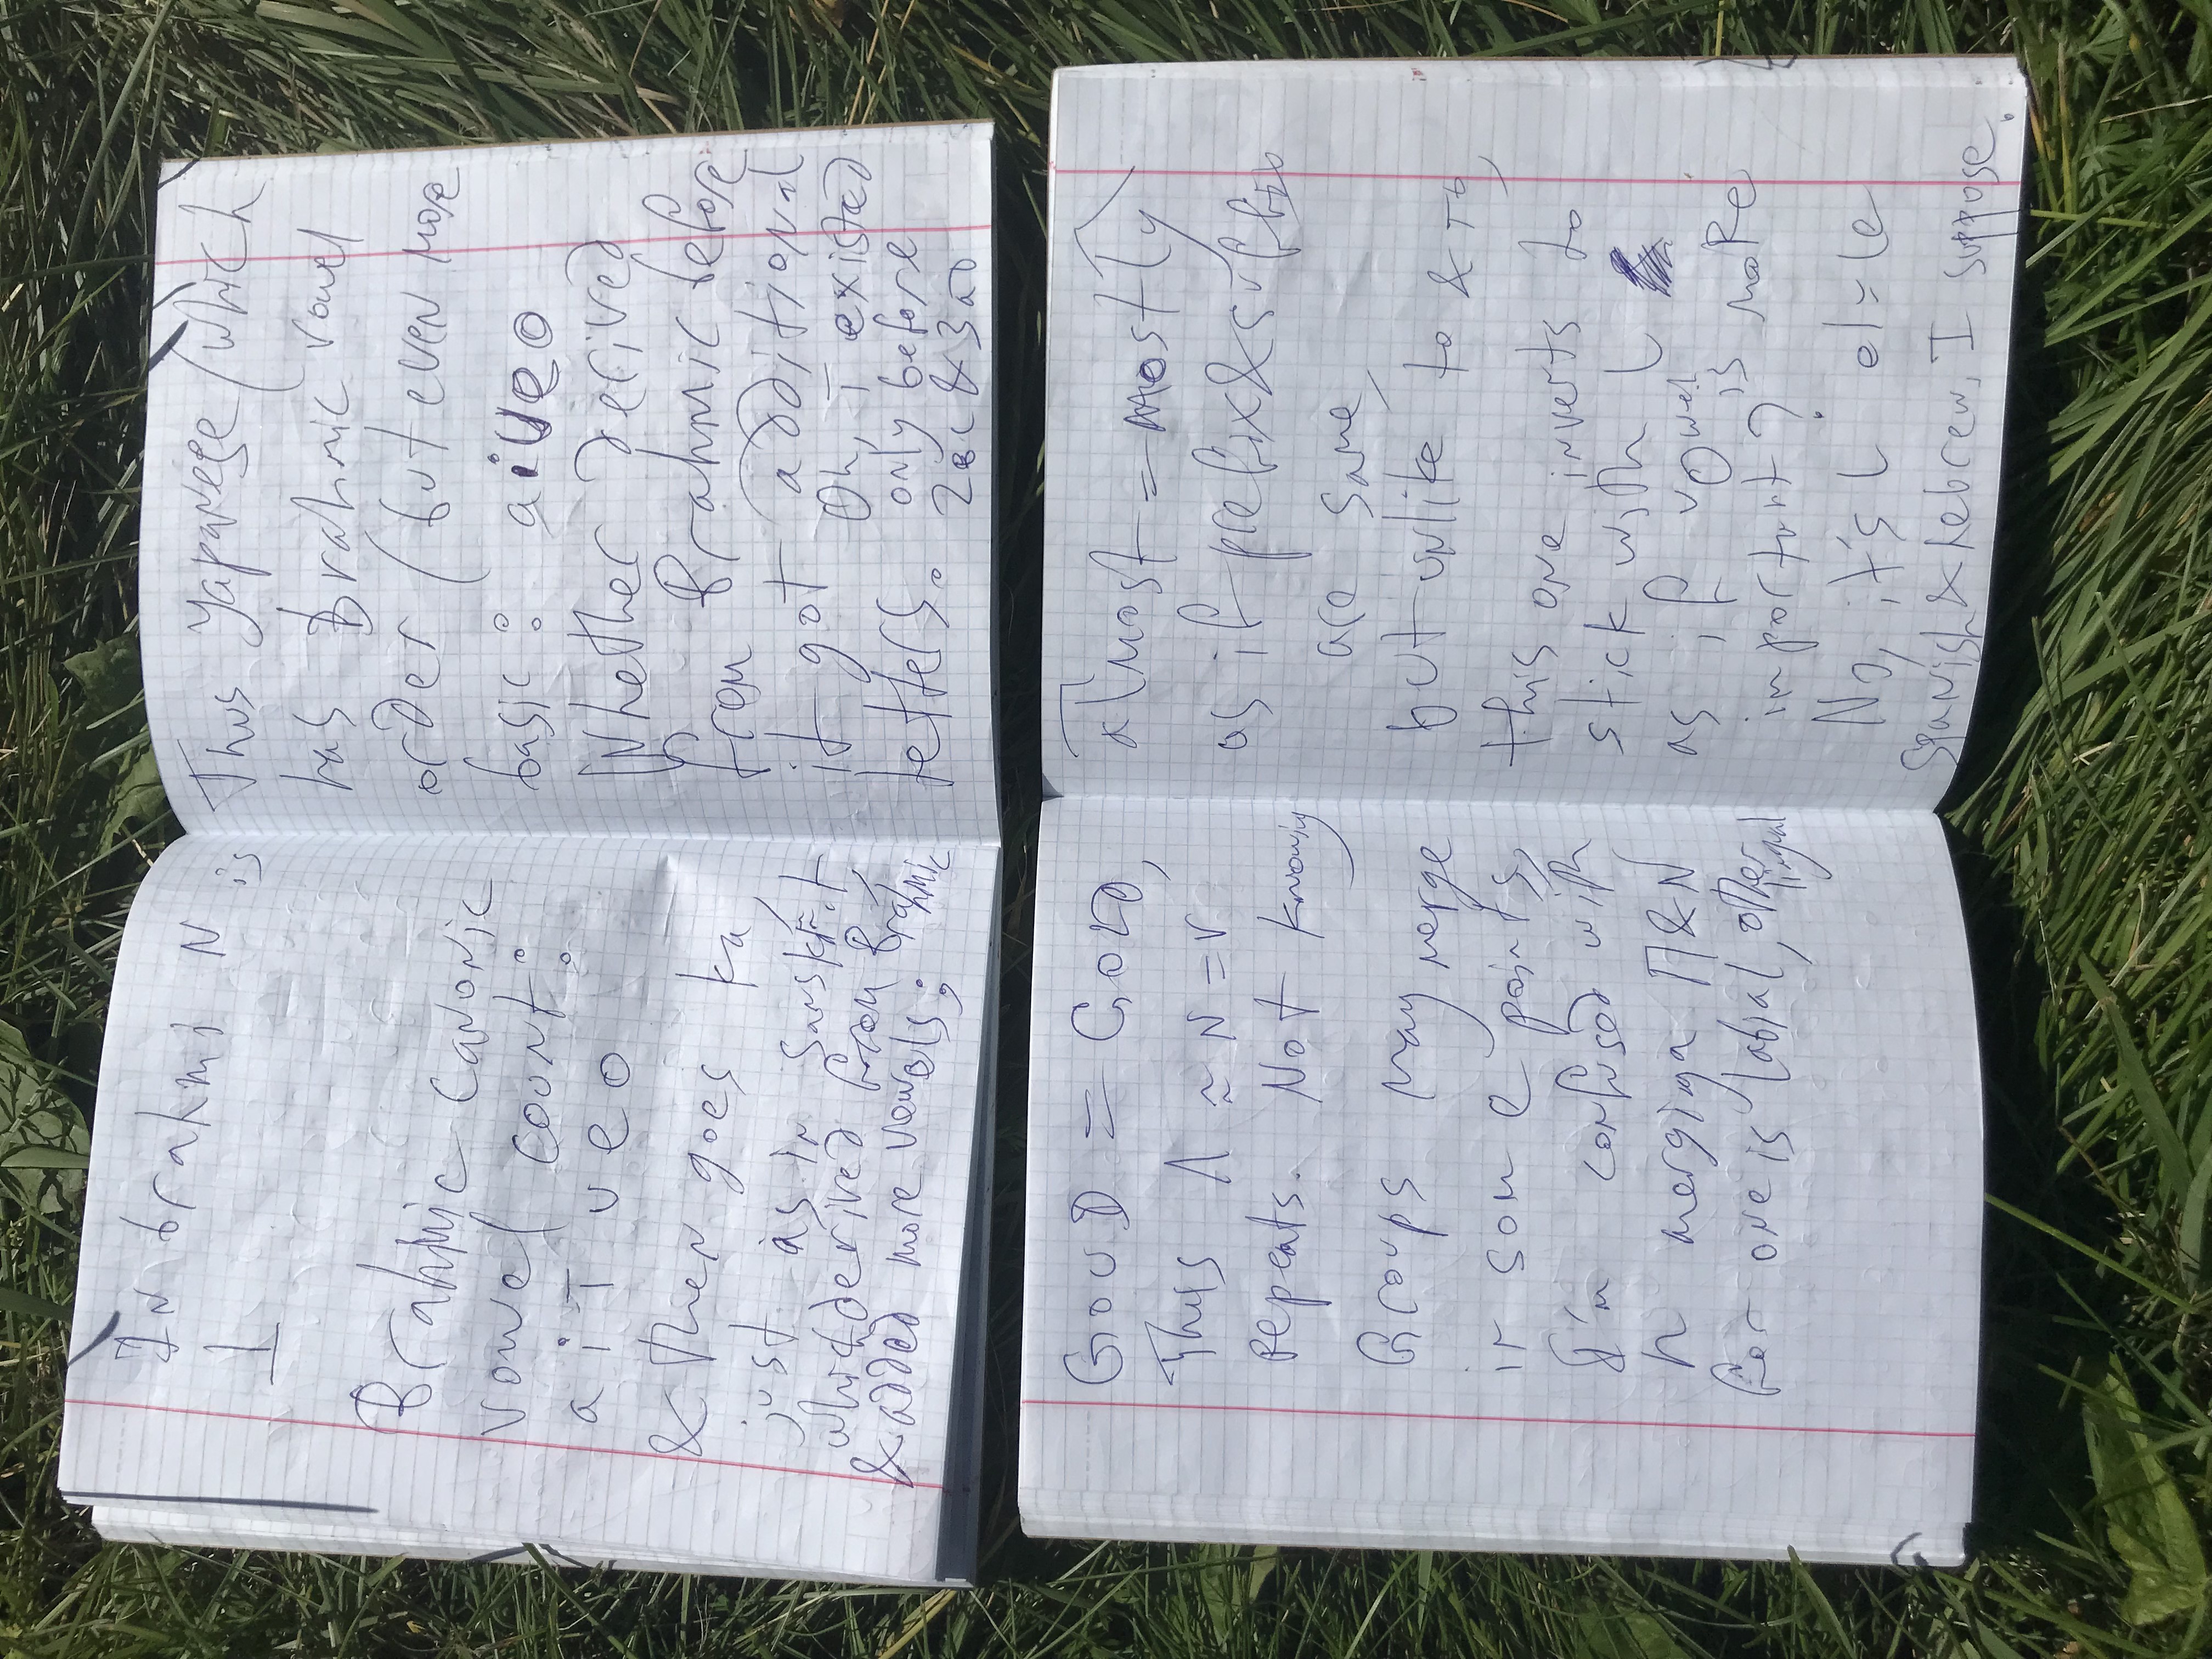 In brahmi N is
⊥
Brahmic canonic
vowel count:
a i ī u e o
& then goes ka,
just as in Sanskrit,
which derived from Brahmic
& added more vowels;
Thus yapanese (which
has Brahmic vowel
order (but even more
basic: aiueo
Whether derived
from Brahmic before
it got additional
letters.
Oh, ī existed
only before
2BC & 3AD
GOUD = GOLD,
Thus Λ ≈ N = V
repeats. Not knowing
Groups may merge
in some points,
I'm confused with
n merging П & N
for one is labial, other
lingual
almost = mostly
as if prefix & suffix
are same,
but unlike to & то,
this one inverts to
stick with L
as if vowel is more
important?
No, it's L el=le
Spanish & hebrew, I suppose.